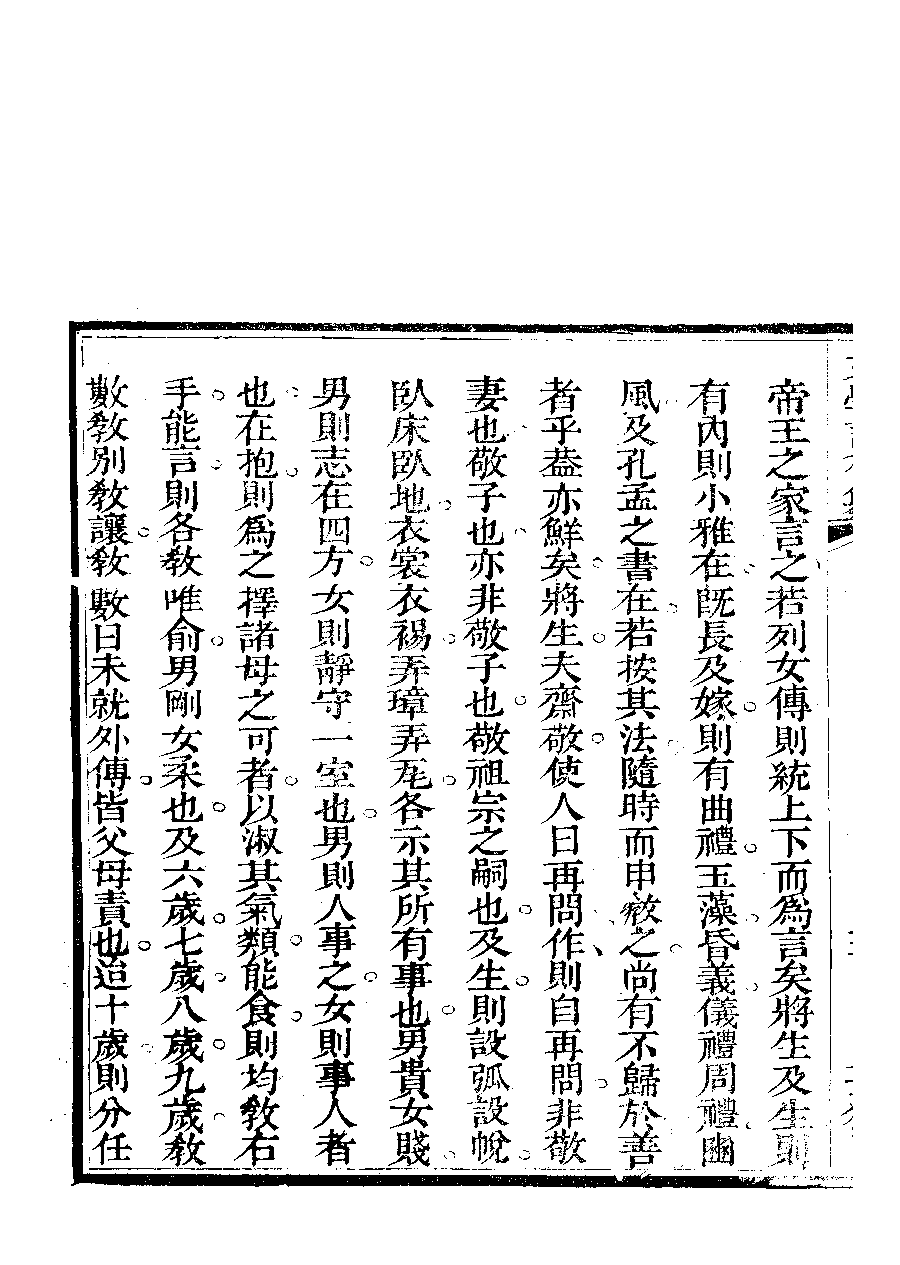 帝王之家言之若列女傳則統上下而爲言矣將生及生則
有內則小雅在旣長及嫁則有曲禮玉藻昏義儀禮周禮豳
風及孔孟之書在若按其法隨時而申敎之尚有不歸於善
者乎葢亦鮮矣將生夫齋敬使人日再問作則自再問非敬
妻也敬子也亦非敬子也敬祖宗之嗣也及生則設弧設帨
臥床臥地衣裳衣裼弄璋弄瓦各示其所有事也男貴女賤
男則志在四方女則靜守一室也男則人事之女則事人者
也在抱則爲之擇諸母之可者以淑其氣類能食則均敎右
手能言則各敎唯俞男剛女柔也及六歲七歲八歲九歲敎
數敎別敎讓敎數日未就外傅皆父母責也迨十歲則分任